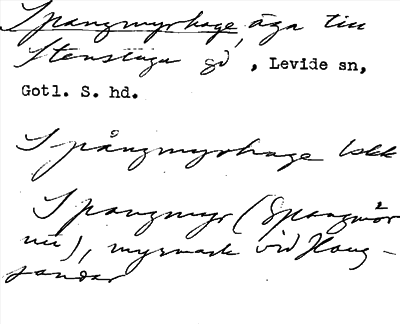 Spangmyrhage, äga till
Stenstuga gd, Levide sn,
Gotl. S. hd.
Spångmyrhage lskk
Spangmyr (Spangmör
nu), myrmark vid Haug-
sandar